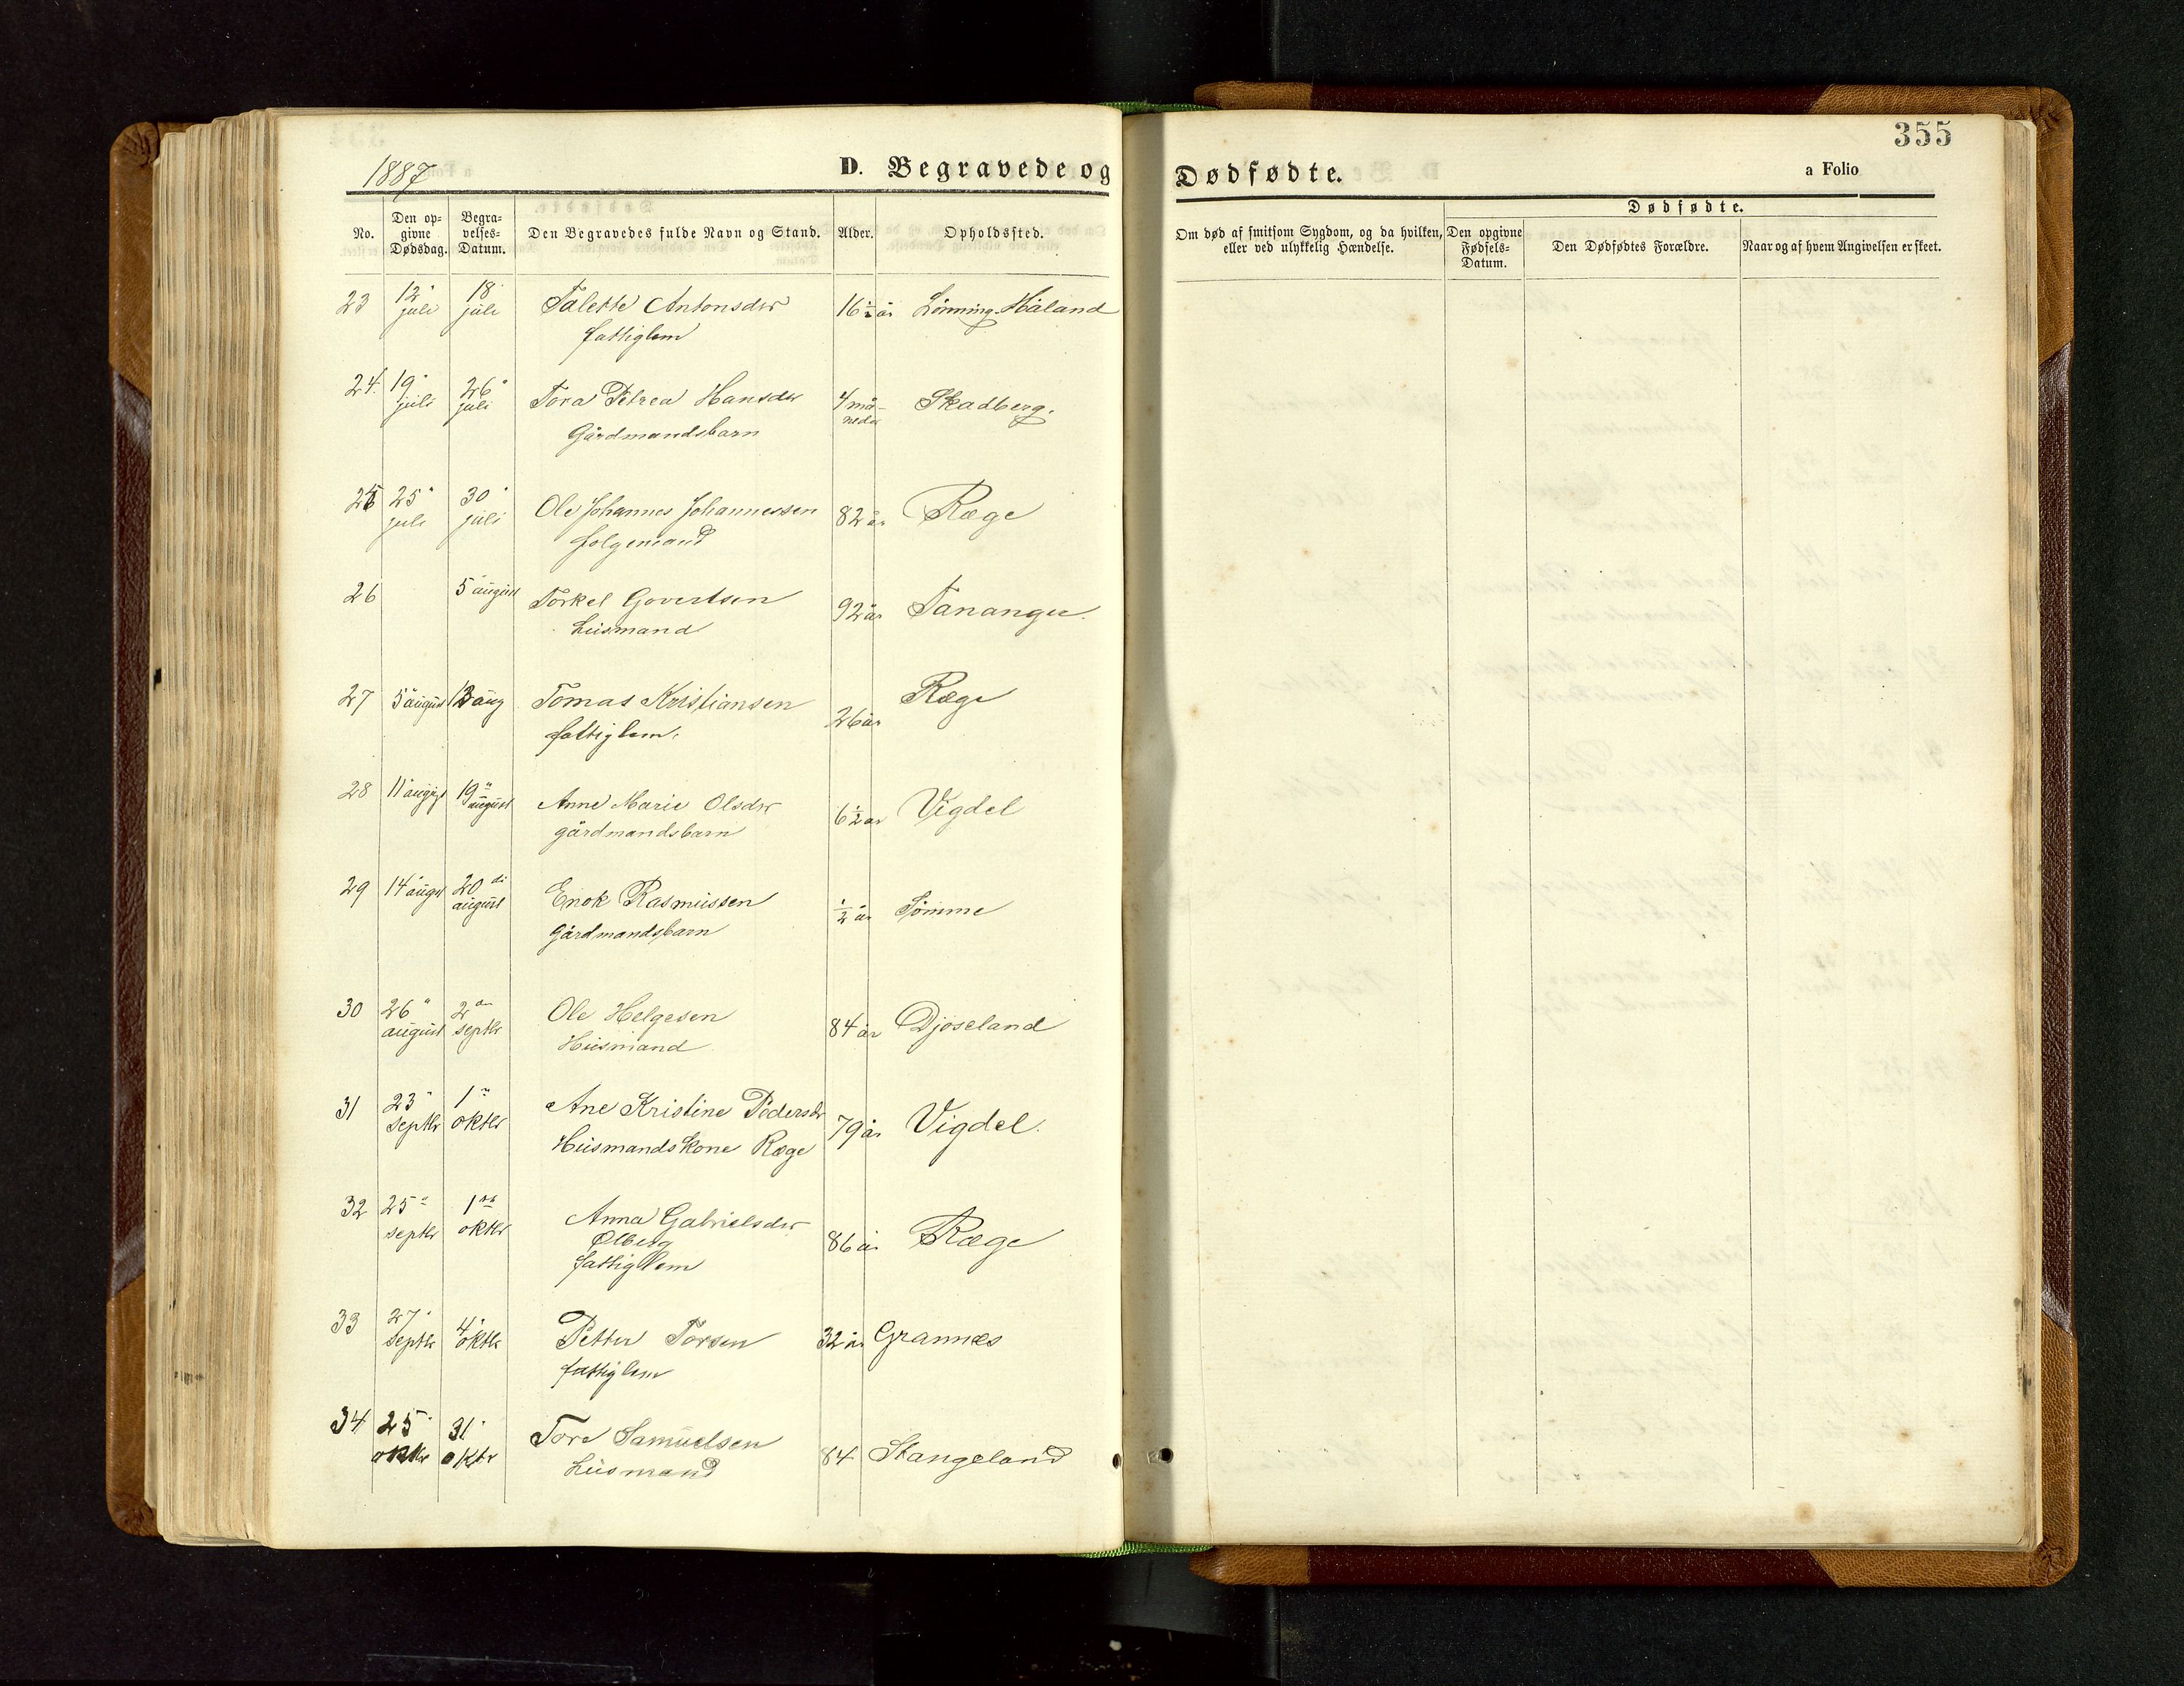 355
1887
D. Begravede og
Dødfødte.
a Folio
No.
Den op-
givne
Dødsdag.
Begra-
velses-
Datum.
Den Begravedes fulde Navn og Stand.
Alder.
Opholdssted.
Om død af smitsom Sygdom, og da hvilken,
eller ved ulykkelig Hændelse.
Dødfødte.
Den opgivne
Fødsels-
Datum.
Den Dødfødtes Forældre.
Naar og af hvem Angivelsen er skeet.
23 12' 18' Talette Antonsdtr 16½ år Lönning Håland
juli juli fattiglem
24. 19' 26' Tora Petrea Hansdtr 4 må- Skadberg.
juli juli neder
Gårdmandsbarn
25 25' 30' Ole Johannes Johannessen 82 år Ræge
juli juli folgemand
26 5 august Torkel Govertsen 92 år Tananger.
Husmand
27 5 august 13 aug Tomas Kristiansen 26 år Ræge
fattiglem.
28 11 august 19 august Anne Marie Olsdtr 6½ år Vigdel
gårdmandsbarn
29 14 august 20de Enok Rasmussen ½ år Sömme
august
Gårdmandsbarn
30 26 2den Ole Helgesen 84 år Djoseland
august septbr Husmand
31 23 1 Ane Kristine Pedersdtr 79 år Vigdel.
septbr oktbr Husmandskone Ræge
32 25 1ste Anna Gabrielsdtr 86 år Ræge
septbr oktbr Ølberg
fattiglem
33 27' 4' Petter Torsen 32 år Grannes
septbr oktbr
fattiglem
34 25' 31' Tore Samuelsen 84 Stangeland
oktbr oktbr Husmand